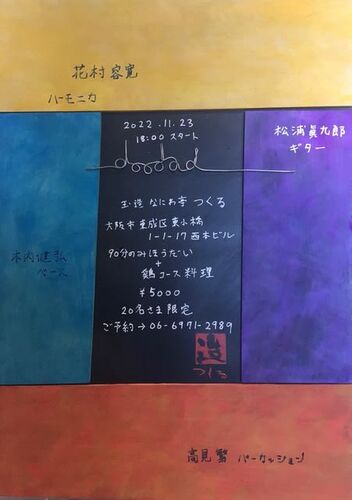 花村容寛
ハーモニカ
2022.11.23
18:00 スタート
松浦眞九郎
ギター
doobad
玉造 なにわ亭 つくる
大阪市東成区東小橋
1-1-17 西本ビル
木内健弘
ベース
90分のみほうだい
+
鶏コース料理
¥5000
20名さま限定
ご予約→06-6971-2989
造
つくる
高見繁 パーカッション